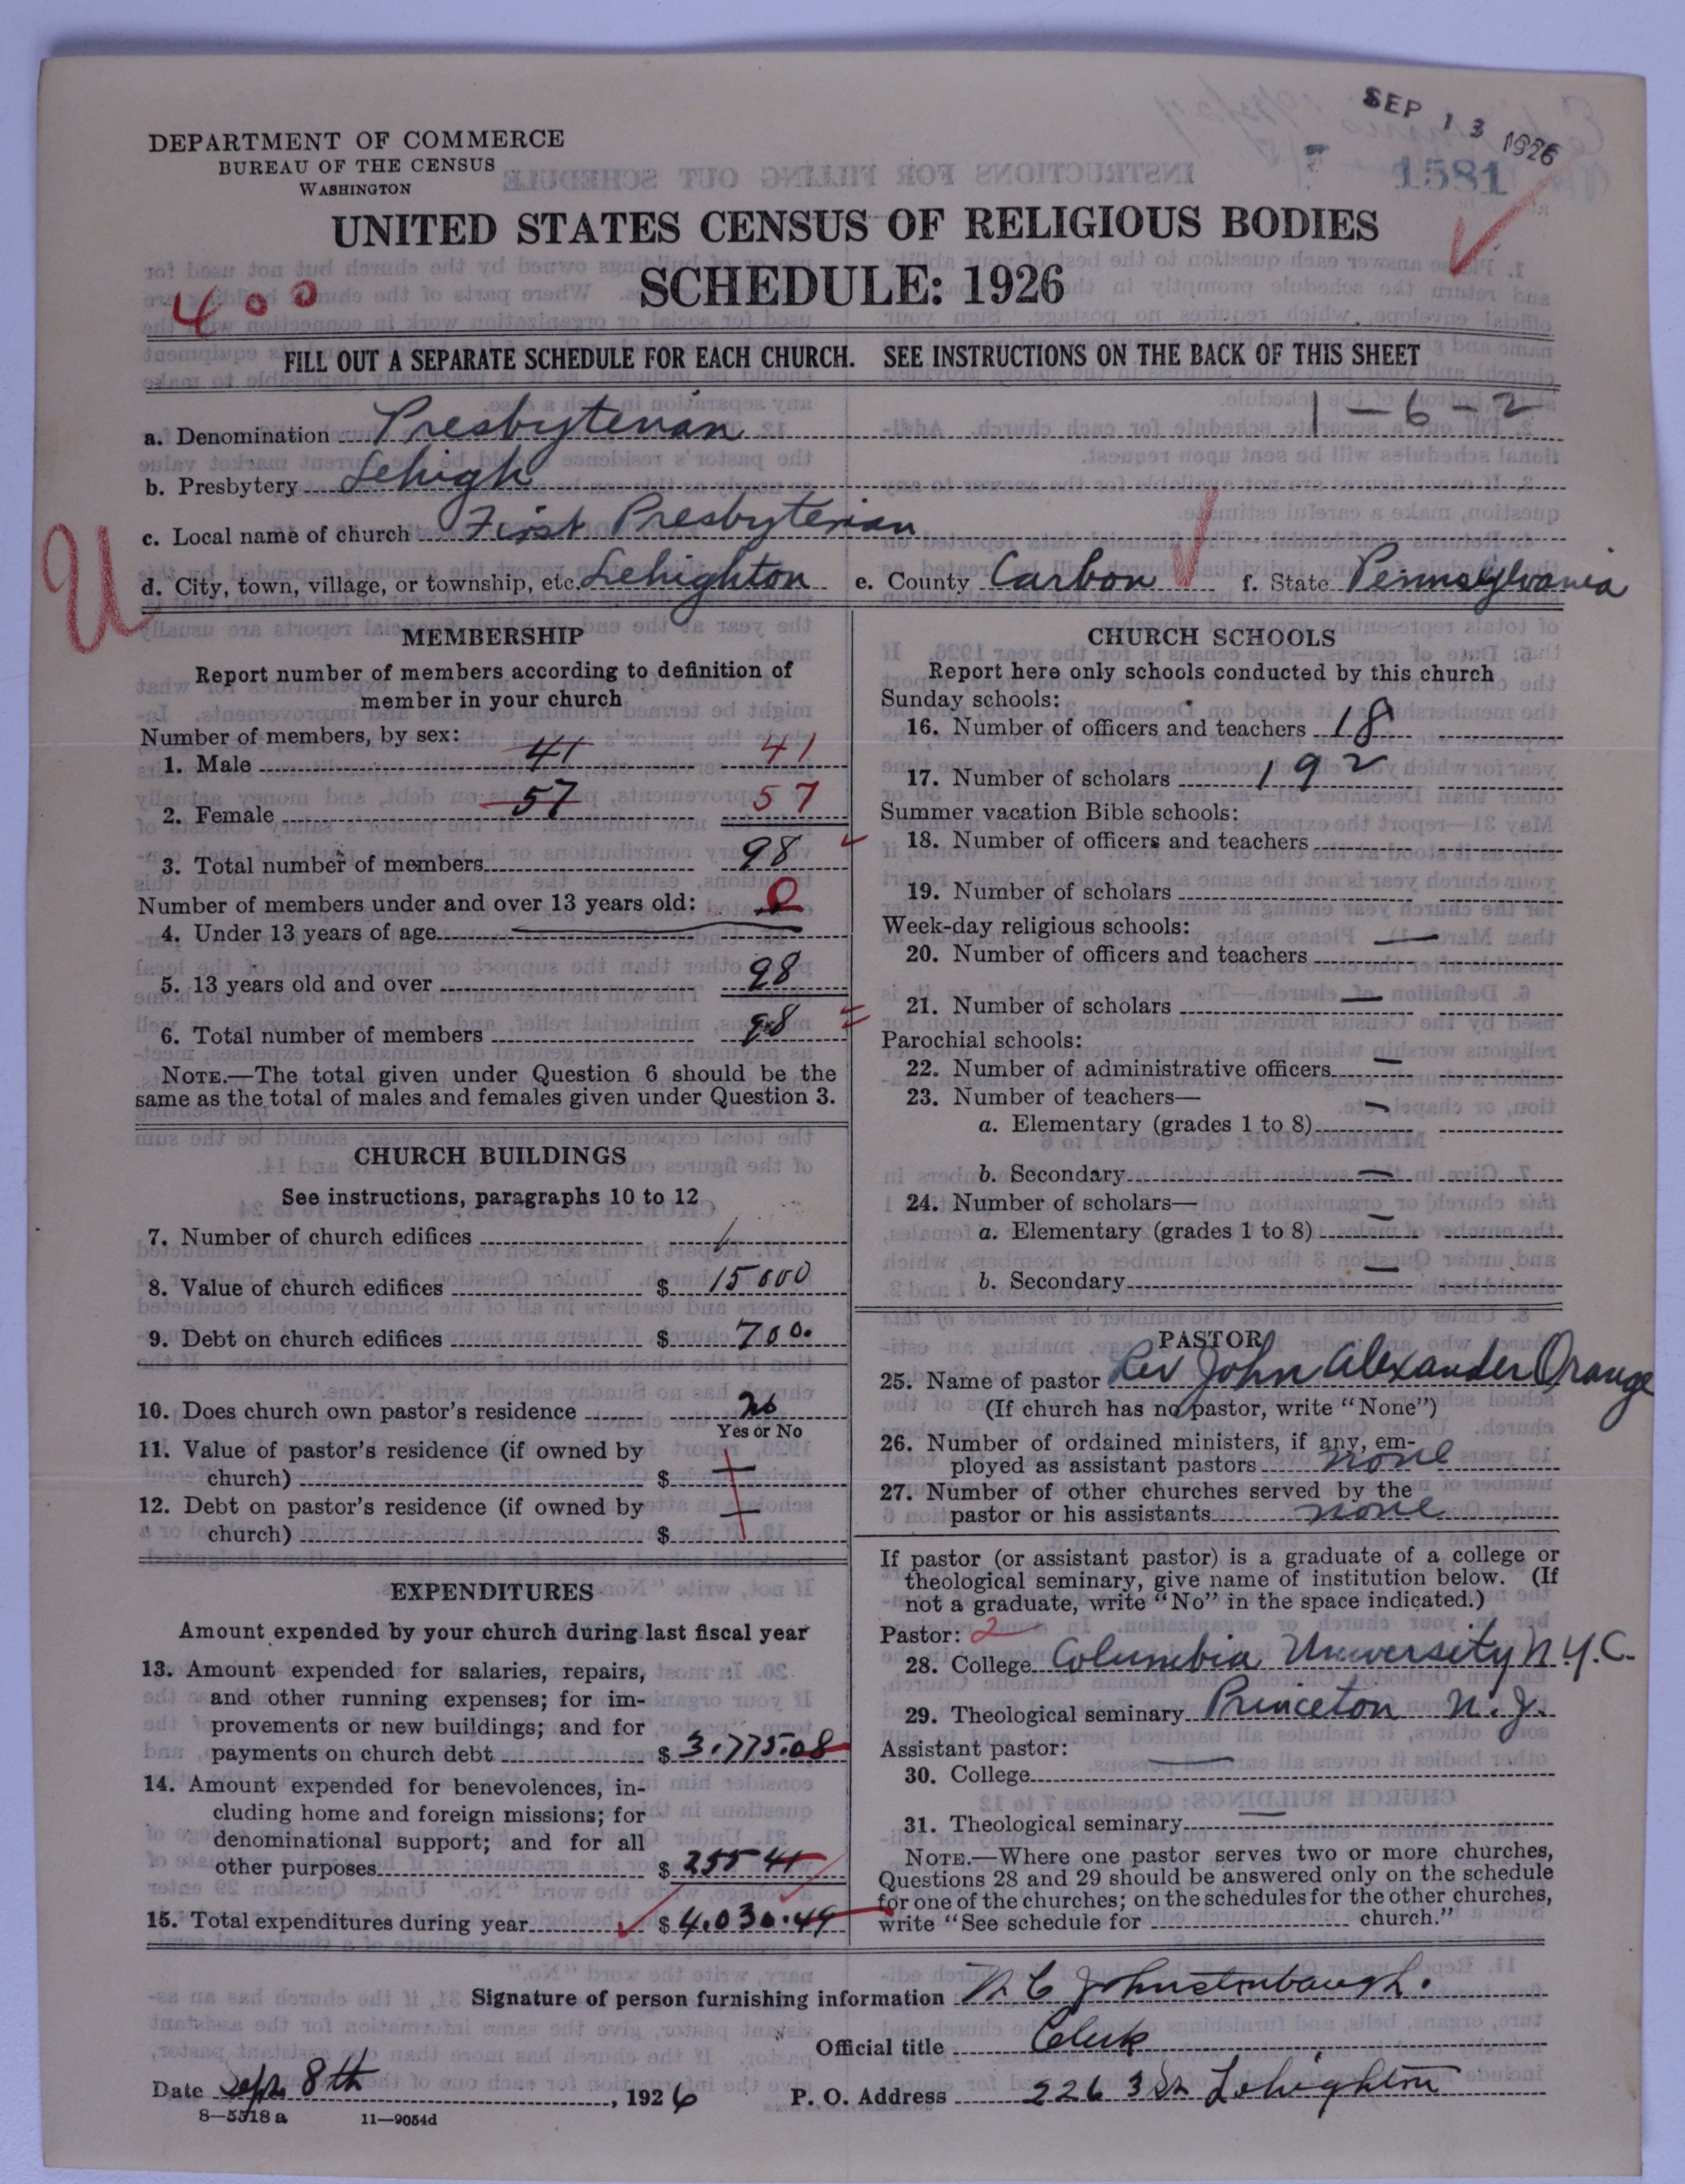 SEP 13 1926
1581
DEPARTMENT OF COMMERCE
BUREAU OF THE CENSUS
WASHINGTON
UNITED STATES CENSUS OF RELIGIOUS BODIES
SCHEDULE: 1926
400
FILL OUT A SEPARATE SCHEDULE FOR EACH CHURCH. SEE INSTRUCTIONS ON THE BACK OF THIS SHEET
1-6-2
a. Denomination Presbyterian
b. Presbytery Lehigh
c. Local name of church First Presbyterian
U
d. City, town, village, or township, etc. Lehighton e. County Carbon f. State Pennsylvania
MEMBERSHIP
Report number of members according to definition of
member in your church
Number of members, by sex:
1. Male 41 41
2. Female 57 57
3. Total number of members 98
Number of members under and over 13 years old: 0
4. Under 13 years of age
5. 13 years old and over 98
6. Total number of members 98
NOTE.—The total given under Question 6 should be the
same as the total of males and females given under Question 3.
CHURCH BUILDINGS
See instructions, paragraphs 10 to 12
7. Number of church edifices 1
8. Value of church edifices $ 15000
9. Debt on church edifices $ 700.
10. Does church own pastor's residence no
Yes or No
11. Value of pastor's residence (if owned by
church) $ —
12. Debt on pastor's residence (if owned by
church) $ —
EXPENDITURES
Amount expended by your church during last fiscal year
13. Amount expended for salaries, repairs,
and other running expenses; for im-
provements or new buildings; and for
payments on church debt $ 3.775.08
14. Amount expended for benevolences, in-
cluding home and foreign missions; for
denominational support; and for all
other purposes $ 255 41
15. Total expenditures during year $ 4.030.49
CHURCH SCHOOLS
Report here only schools conducted by this church
Sunday schools:
16. Number of officers and teachers 18
17. Number of scholars 192
Summer vacation Bible schools:
18. Number of officers and teachers
19. Number of scholars
Week-day religious schools:
20. Number of officers and teachers —
21. Number of scholars —
Parochial schools:
22. Number of administrative officers —
23. Number of teachers—
a. Elementary (grades 1 to 8) —
b. Secondary —
24. Number of scholars—
a. Elementary (grades 1 to 8) —
b. Secondary —
PASTOR
25. Name of pastor Rev John Alexander Orange
(If church has no pastor, write "None")
26. Number of ordained ministers, if any, em-
ployed as assistant pastors none
27. Number of other churches served by the
pastor or his assistants none
If pastor (or assistant pastor) is a graduate of a college or
theological seminary, give name of institution below. (If
not a graduate, write "No" in the space indicated.)
Pastor: 2
28. College Columbia University N.Y.C.
29. Theological seminary Princeton N.J.
Assistant pastor:
30. College —
31. Theological seminary —
NOTE.—Where one pastor serves two or more churches,
Questions 28 and 29 should be answered only on the schedule
for one of the churches; on the schedules for the other churches,
write "See schedule for church."
Signature of person furnishing information N C Johnstonbaugh.
Official title Clerk
Date Sept 8th, 1926 P. O. Address 226 3 St Lehighton
8—5518 a 11—9054d